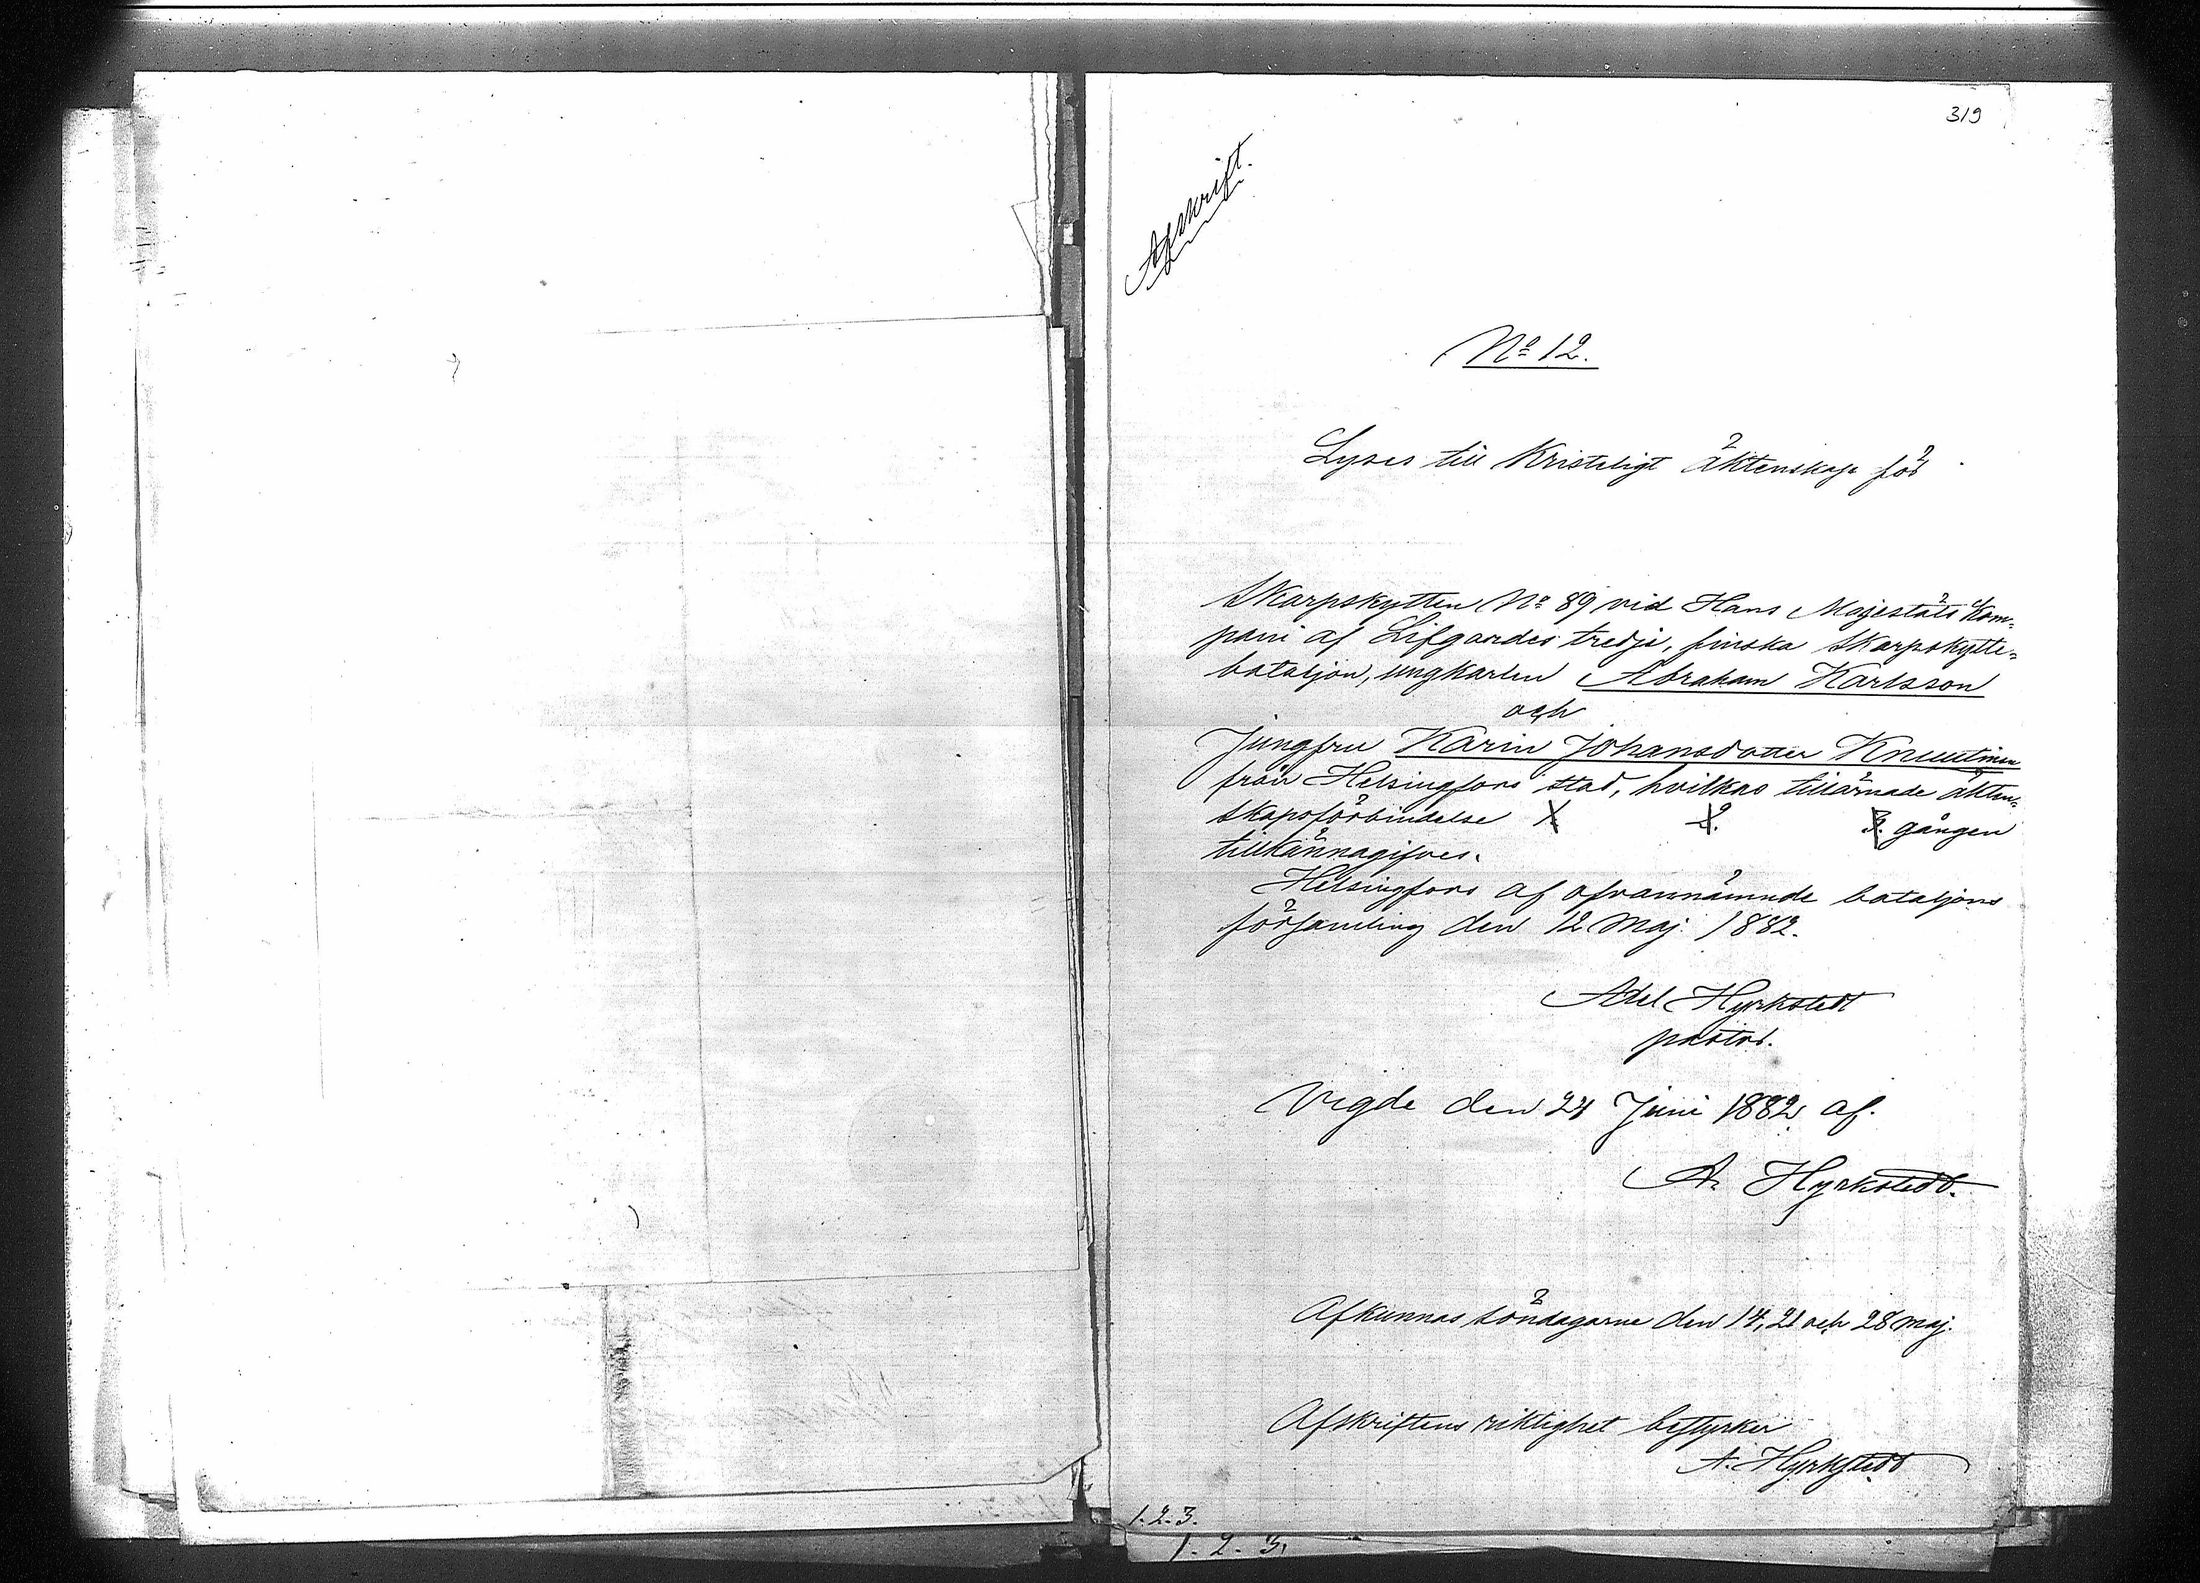 319
Afskrift.
No 12.
Lyses till Kristeligt äktenskap för
Skarpskytten No 89 vid Hans Majestäts Kom=
pani af Lifgardes tredje, finska Skarpskytte=
bataljon, ungkarlen Abraham Karlsson
och
Jungfru Karin Johansdotter Knuutinen
från Helsingfors stad, hvilkas tillärnade äkten=
skapsförbindelse 1. 2. 3. gången
tillkännagifves.
Helsingfors af ofvannämnde bataljons
församling den 12 Maj 1882.
Axel Hyrkstedt
pastor.
Vigde den 24 Juni 1882 af.
A. Hyrkstedt.
Afkunnas söndagarne den 14, 21 och 28 Maj.
Afskriftens riktighet bestyrker
A. Hyrkstedt
1. 2. 3.
1. 2. 3.